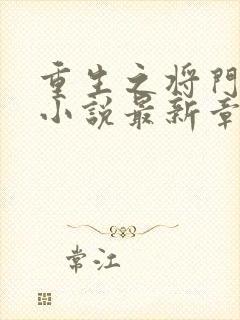 重生之将门
小说最新章
常江